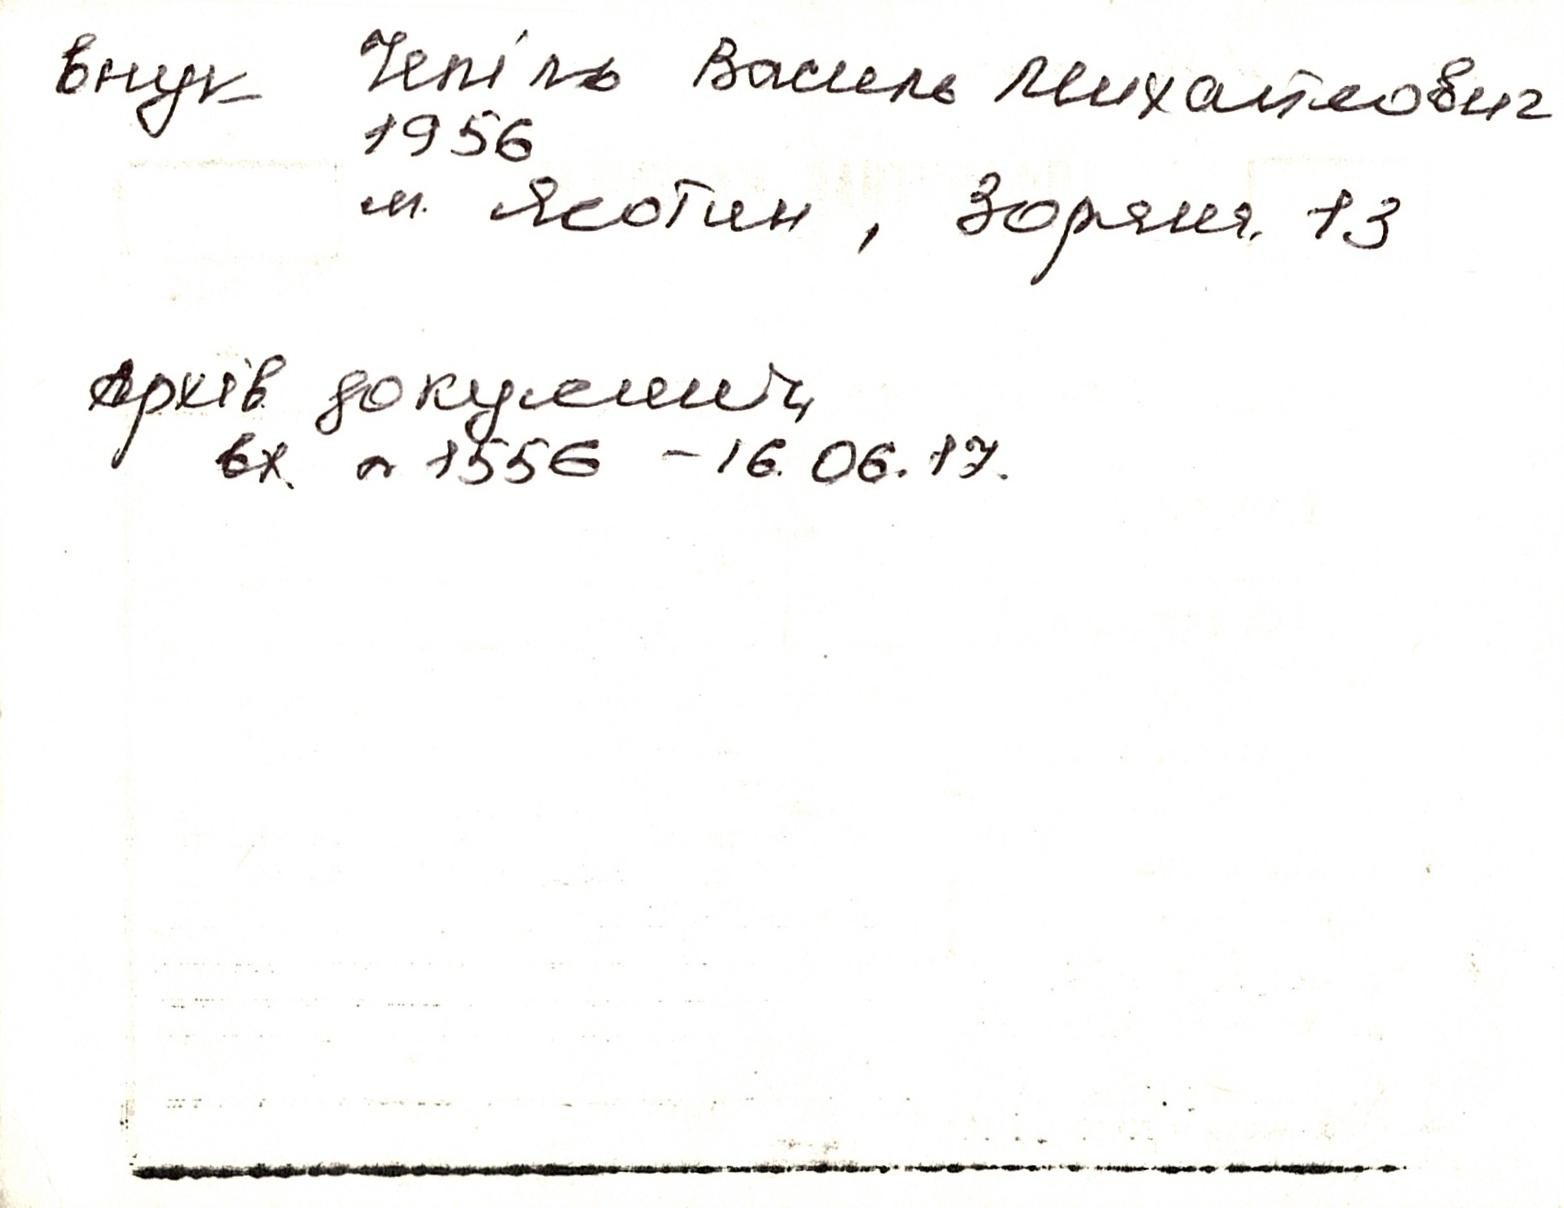 внук Чепіль Василь Михайлович
1956
м. Яготин, Зоряна, 13
Архів документи
вх. № 1556 - 16.06.17.